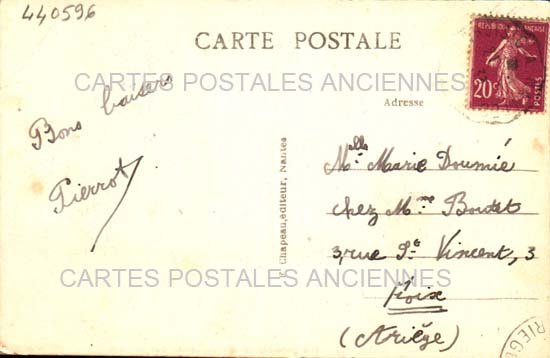 440596
CARTE POSTALE
REPUBLIQUE FRANÇAISE
20c
POSTES
CARTES POSTALES ANCIENNES
Adresse
Bons baisers
Pierrot
F. Chapeau, éditeur, Nantes
Melle Marie Doumié
chez Mme Boudet
3, rue St Vincent, 3
Foix
(Ariége)
CARTES POSTALES ANCIENNES
RIEGE